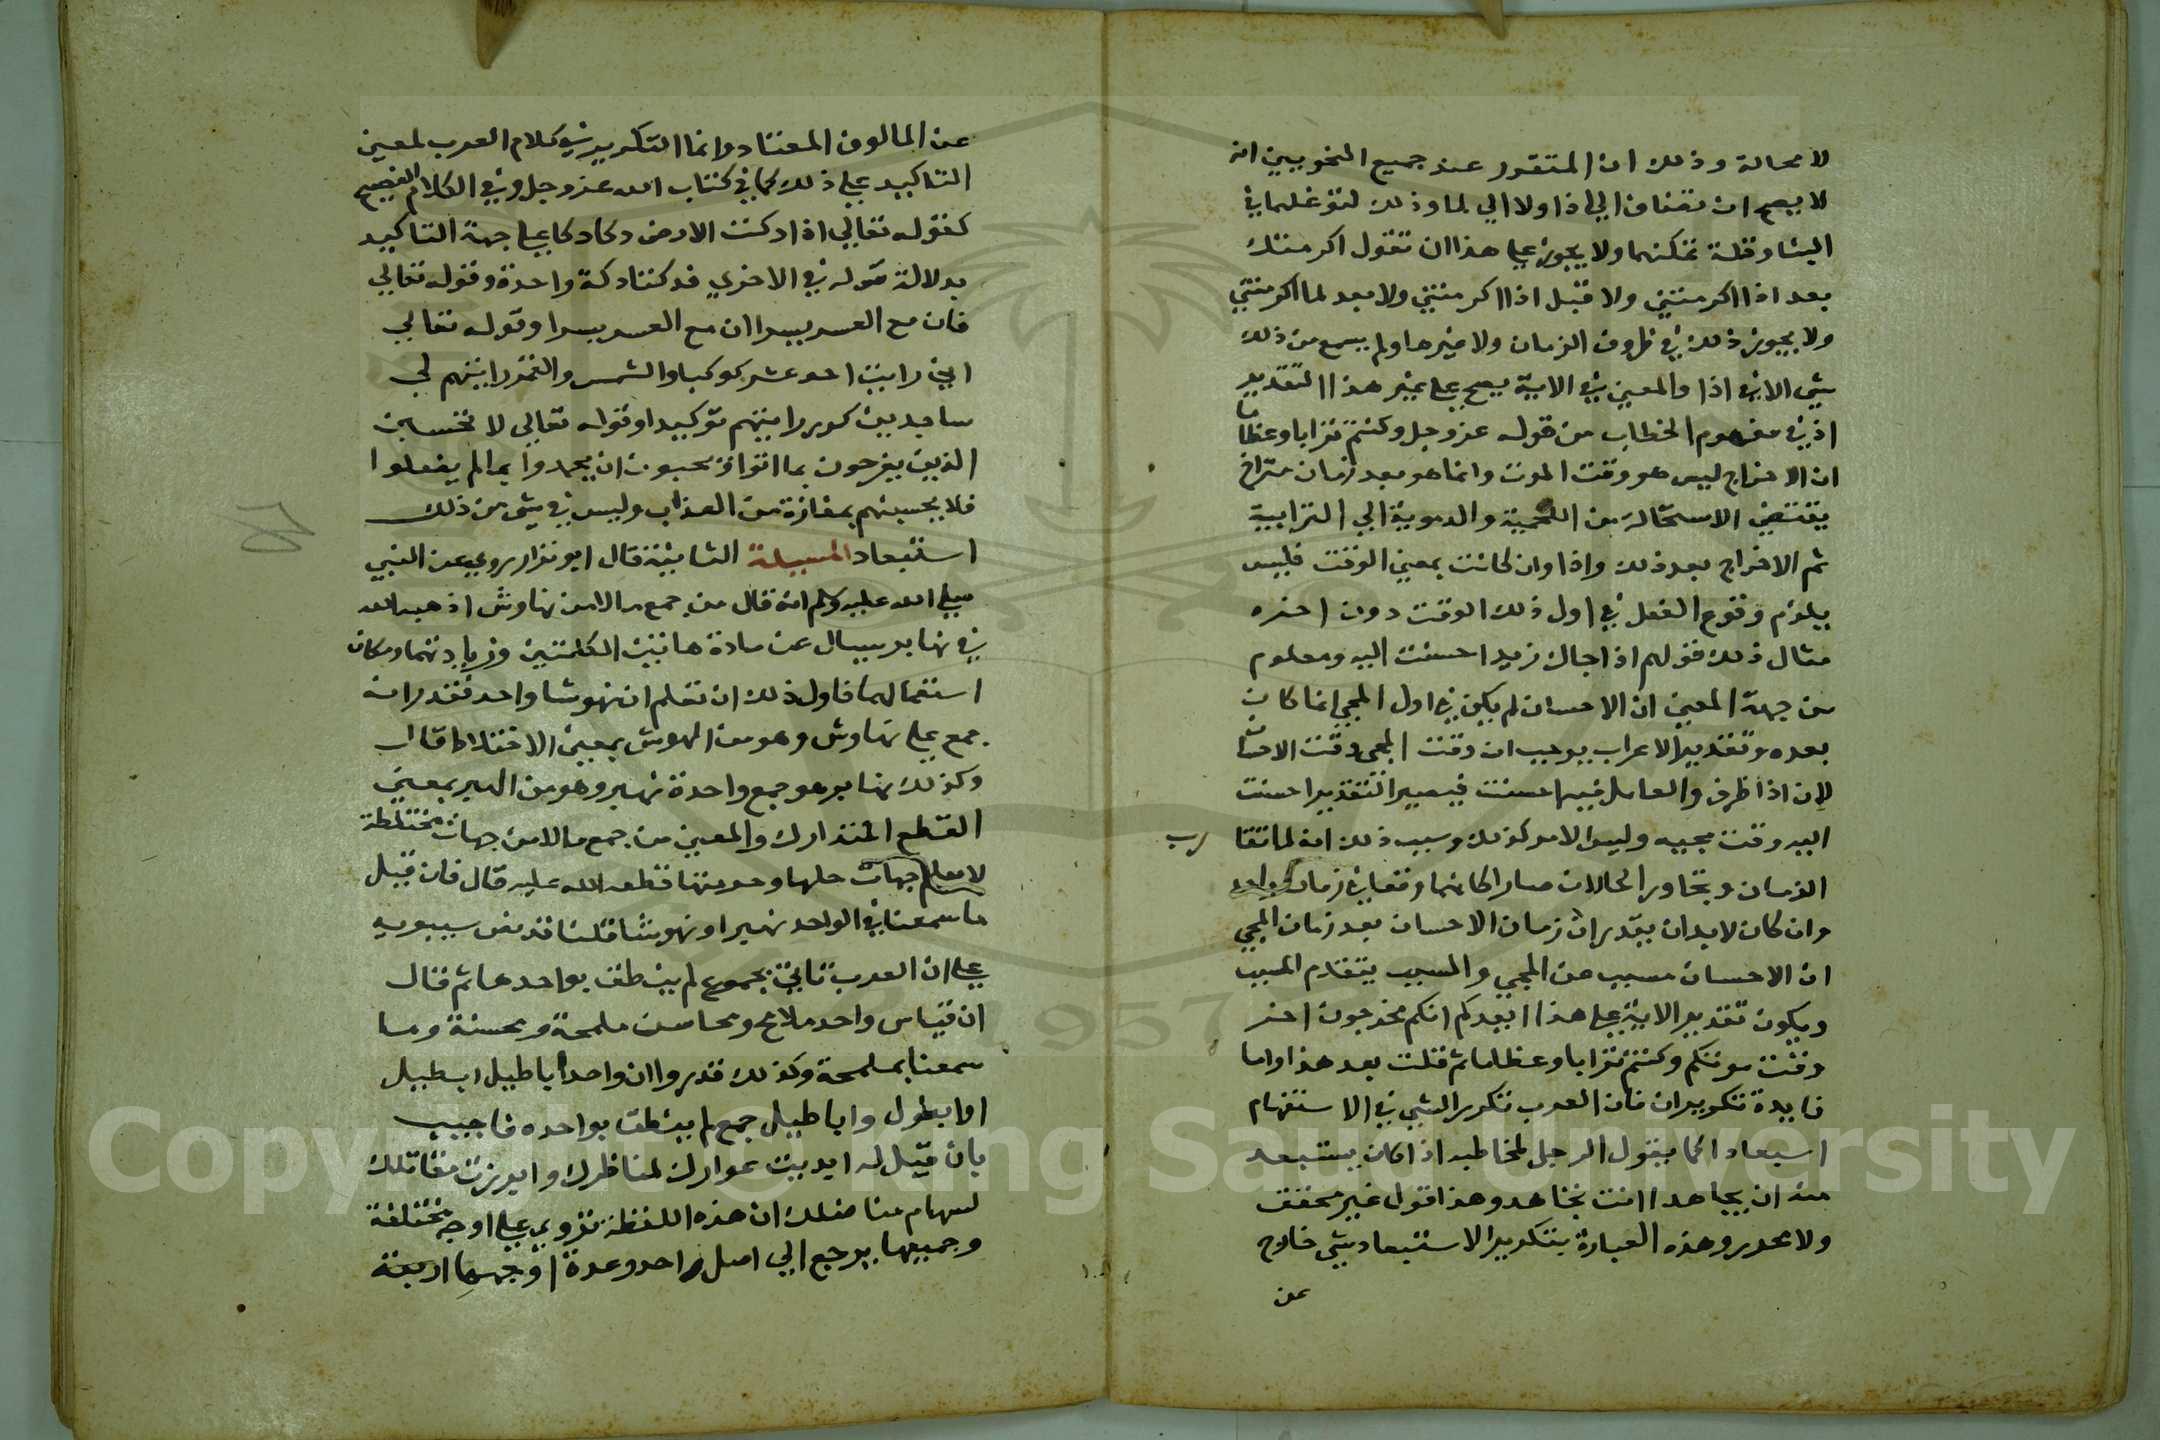 لا محالة وذلك ان المتقرر عند جميع النحويين انه
لا يصح ان تضاف الي اذا ولا الي لما وذلك لتوغلهما في
البنا وقلة تمكنهما ولا يجوز علي هذا ان تقول اكرمتك
بعد اذا اكرمتني ولا قبل اذا اكرمتني ولا بعد لما اكرمتني
ولا يجوز ذلك في ظروف الزمان ولا غيرها ولم يسمع من ذلك
شي الا في اذا والمعني في الاية يصح علي غير هذا التقدير
اذ في مفهوم الخطاب من قوله عز وجل وكنتم ترابا وعظاما
ان الاخراج ليس هو وقت الموت وانما هو بعد زمان متراخ
يقتضي الاستحالة من اللحمية والدموية الي الترابية
ثم الاخراج بعد ذلك واذا وان كانت بمعني الوقت فليس
يلزم وقوع الفعل في اول ذلك الوقت دون اخره
مثال ذلك قولهم اذا جاك زيد احسنت اليه ومعلوم
من جهة المعني ان الاحسان لم يكن في اول المجي انما كان
بعده وتقدير الاعراب يوجب ان وقت المجي وقت الاحسان
لان اذا ظرف والعامل فيه احسنت فيصير التقدير احسنت
اليه وقت مجيه وليس الامر كذلك وسبب ذلك انه لما تقا
رب
الزمان وتجاور الحالان صارا كانهما وقعا في زمان واحد
وان كان لا بد ان يقدر ان زمان الاحسان بعد زمان المجي
ان الاحسان مسبب عن المجي والسبب يتقدم المسبب
ويكون تقدير الاية علي هذا ايعدكم انكم مخرجون اخر
وقت موتكم وكنتم ترابا وعظاما ثم قلت بعد هذا واما
فايدة تكرير ان فان العرب تكرر الشي في الاستفهام
استبعادا كما يقول الرجل لمخاطبه اذا كان يستبعد
منه ان يجاهد اانت تجاهد وهذا قول غير محقق
ولا محرر وهذه العبارة بتكرير الاستبعاد شي خارج
عن
عن المالوف المعتاد وانما التكرير في كلام العرب لمعني
التاكيد علي ذلك كما في كتاب الله عز وجل وفي الكلام الفصيح
كقوله تعالي اذا دكت الارض دكا دكا علي جهة التاكيد
بدلالة قوله في الاخري فدكتا دكة واحدة وقوله تعالي
فان مع العسر يسرا ان مع العسر يسرا وقوله تعالي
اني رايت احد عشر كوكبا والشمس والقمر رايتهم لي
ساجدين كرر رايتهم توكيدا وقوله تعالي لا تحسبن
الذين يفرحون بما اتوا ويحبون ان يحمدوا بما لم يفعلوا
فلا يحسبنهم بمفازة من العذاب وليس في شي من ذلك
استبعاد المسيلة الثانية قال ابو نزار روي عن النبي
صلي الله عليه وسلم انه قال من جمع مالا من نهاوش اذهبه الله
في نهابر يسال عن مادة هاتين الكلمتين وزيادتهما ومكان
استعمالهما فاول ذلك ان تعلم ان نهوشا واحد فقدرانه
جمع علي نهاوش وهو من الهوش بمعني الاختلاط قال
وكذلك نهابر هو جمع واحدة نهبر وهو من الهبر بمعني
القطع المتدارك والمعني من جمع مالا من جهات مختلطة
لا يعلم جهات حلها وحرمتها قطعه الله عليه قال فان قيل
ما سمعنا في الواحد نهبرا ونهوشا قلنا قد نص سيبويه
علي ان العرب تاتي بجموع لم ينطق بواحدها ثم قال
ان قياس واحد ملامح ومحاسن ملمحة ومحسنة وما
سمعنا بملمحة وكذلك قدروا ان واحد اباطيل ابطيل
او ابطول واباطيل جمع لم ينطق بواحده فاجيب
بان قيل له ابديت عوارك لمناظرك وابرزت مقاتلك
لسهام مناضلك ان هذه اللفظة تروي علي اوجه مختلفة
وجميعها يرجع الي اصل واحد وعدة اوجهها اربعة
Copyright © King Saud University
1957